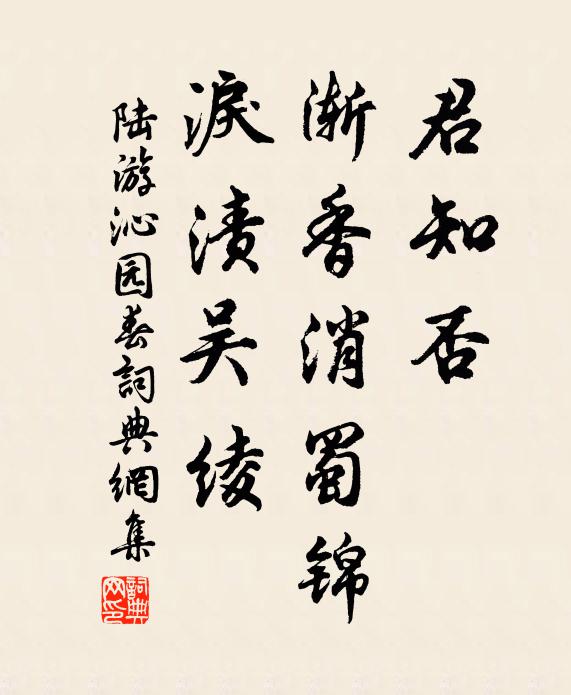 君知否
渐香消蜀锦
淚渍吴绫
陆游沁园春詞典網集
詞典网印